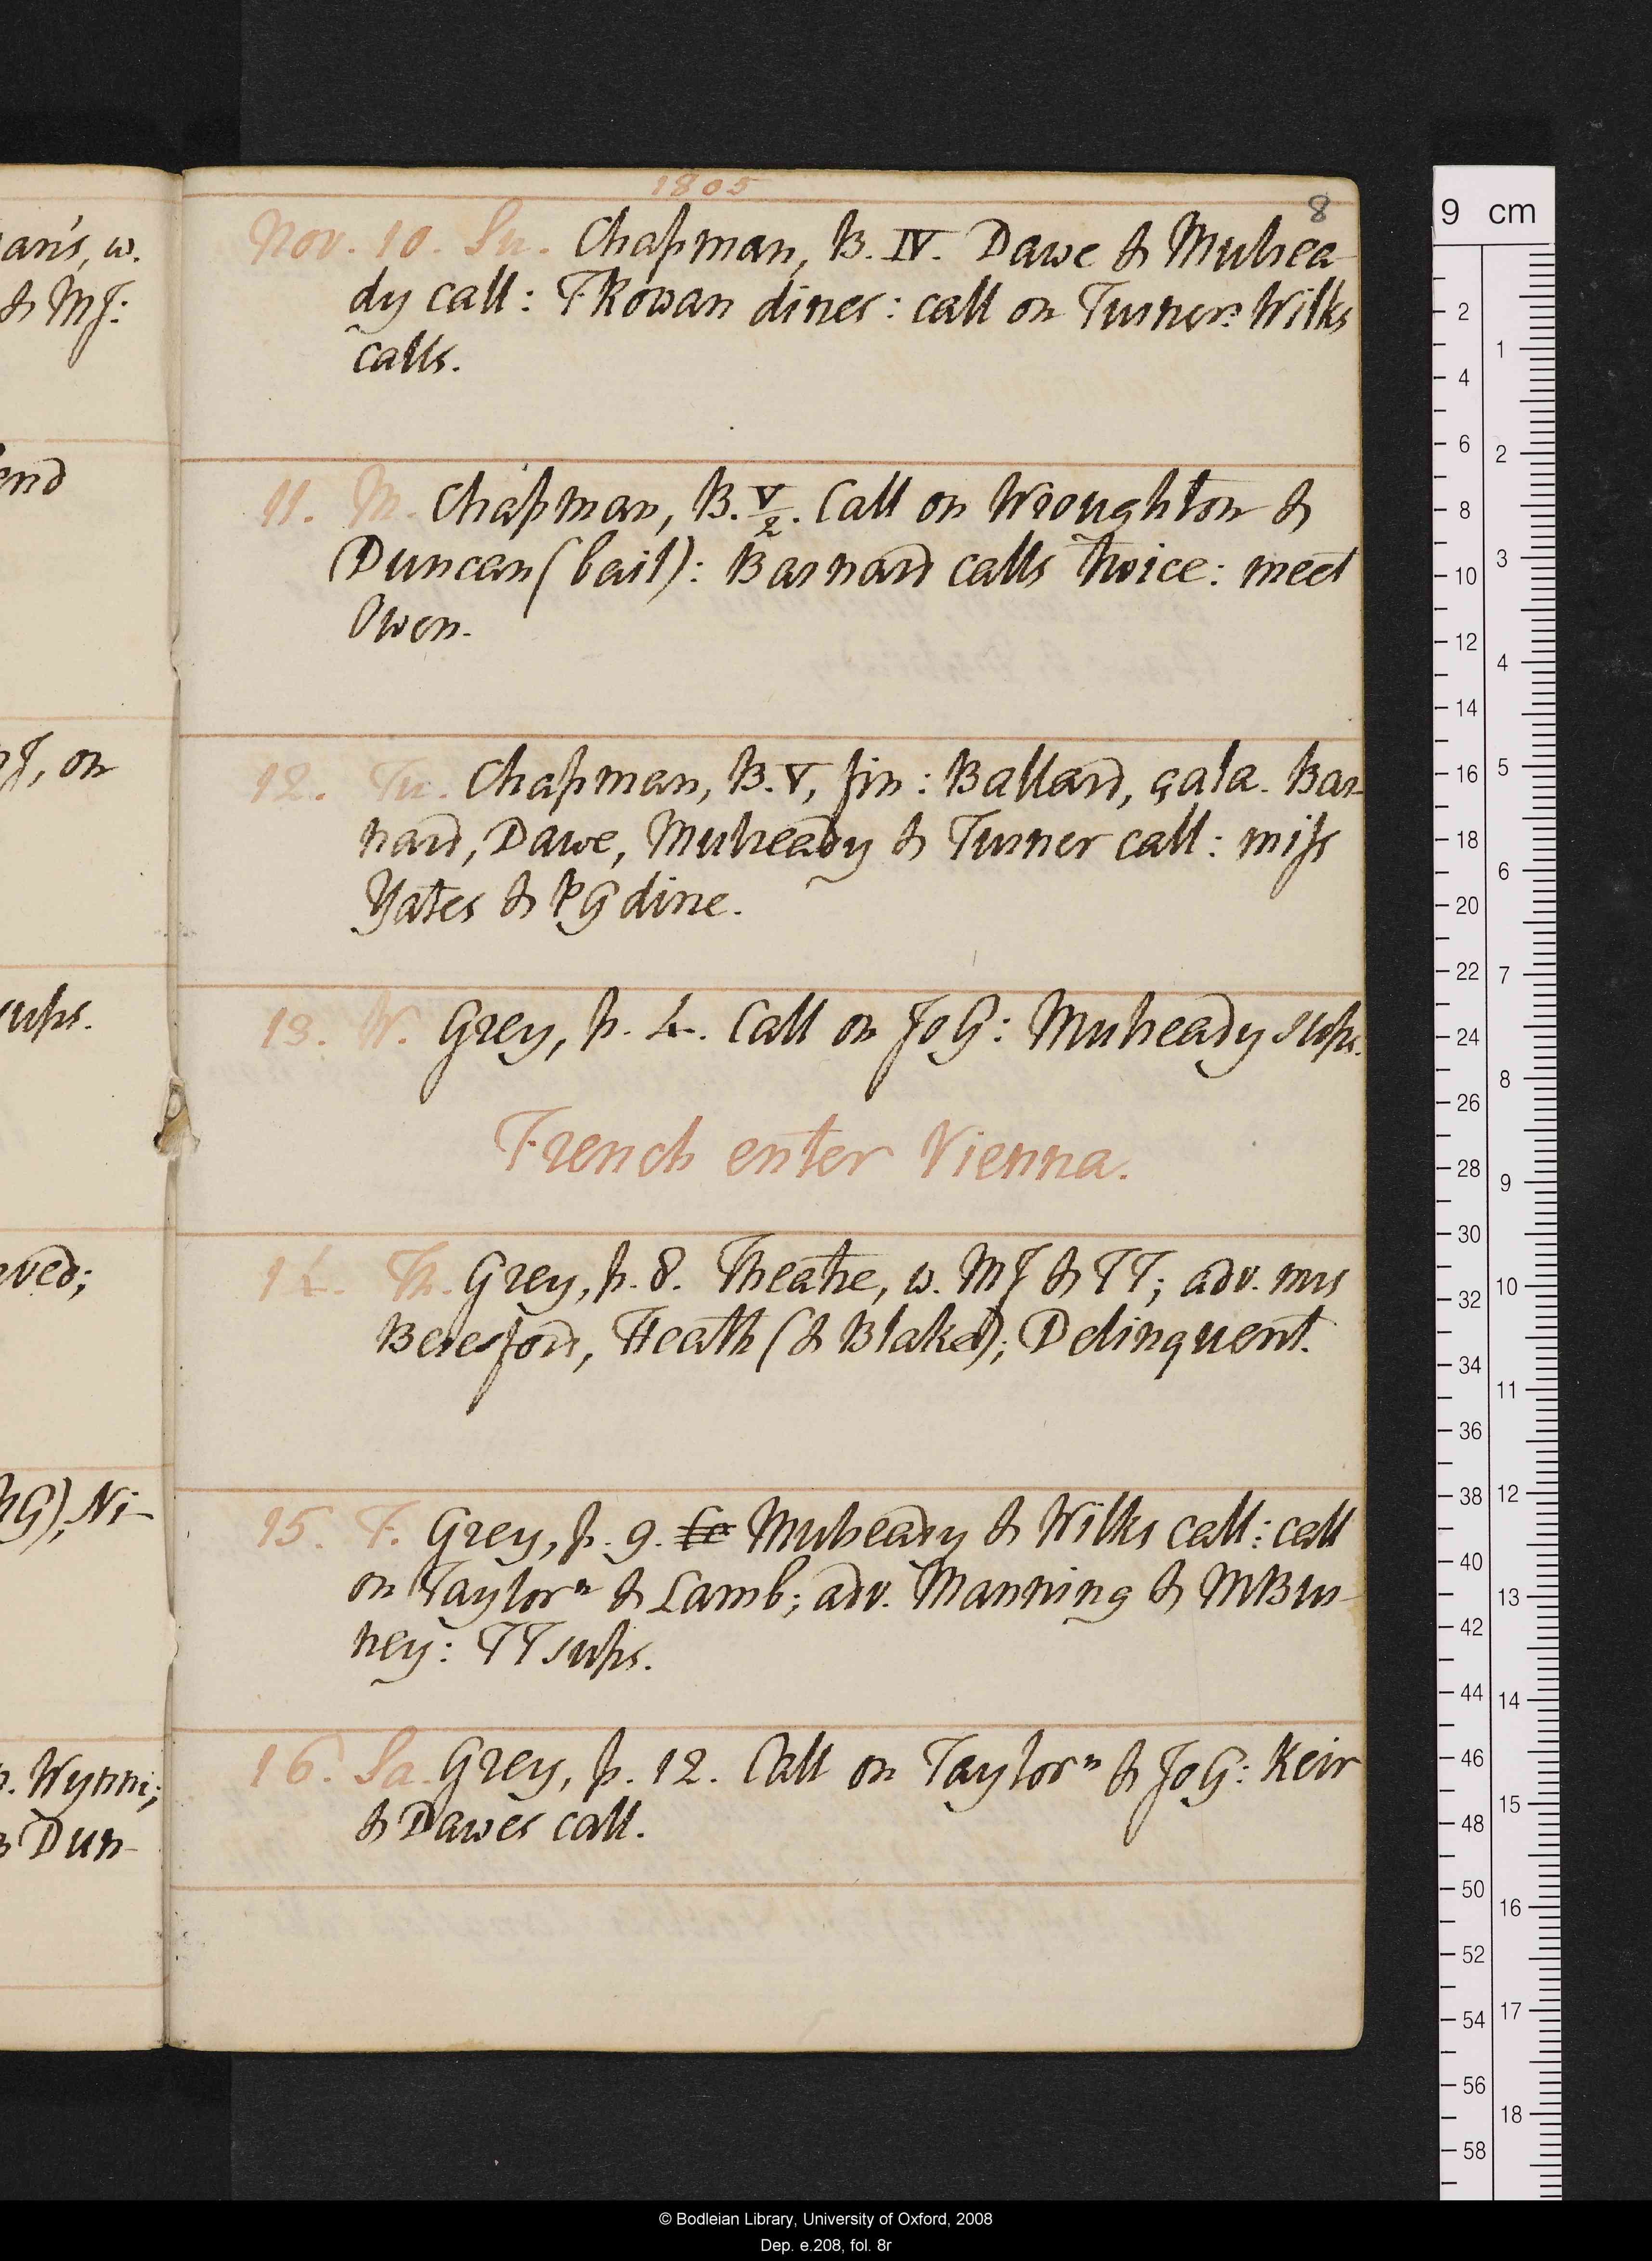 1805
8
Nov. 10. Su. Chapman, B. IV. Dawe & Mulrea-
dy call: T Rowan dines: call on Turner: Wilks
calls.
11. M. Chapman, B. V/2. Call on Wroughton &
Duncan (bail): Barnard calls twice: meet
Owen.
12. Tu. Chapman, B. V, fin: Ballard, gala. Bar-
nard, Dawe, Mulready & Turner call: miss
Yates & PG dine.
13. W. Grey, p. 4. Call on JoG: Mulready sups.
French enter Vienna.
14. Th. Grey, p. 8. Theatre, w. MJ & TT; adv. mrs
Beresford, Heath (& Blake); Delinquent.
15. F. Grey, p. 9. Mulready & Wilks call: call
on Taylorⁿ & Lamb; adv. Manning & MBur-
ney: TT sups.
16. Sa. Grey, p. 12. Call on Taylorⁿ & JoG: Keir
& Dawes call.
an's, w.
& MJ:
end
MJ, on
sups.
ved;
G), Ni-
n. Wynn;
Dun-
9 cm
2
4
6
8
10
12
14
16
18
20
22
24
26
28
30
32
34
36
38
40
42
44
46
48
50
52
54
56
58
1
2
3
4
5
6
7
8
9
10
11
12
13
14
15
16
17
18
© Bodleian Library, University of Oxford, 2008
Dep. e.208, fol. 8r